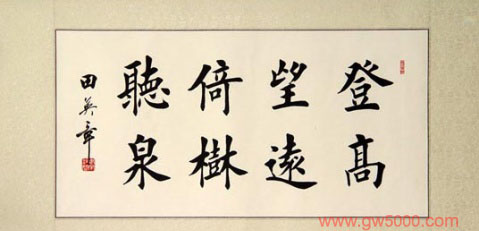 登高
望遠
倚樹
聽泉
田英章
www.gw5000.com